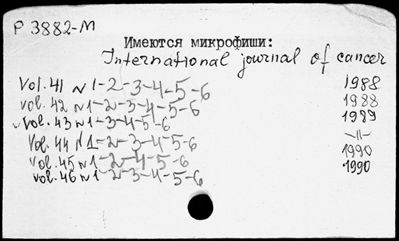 Р 3882-М
Имеются микрофиши:
International journal of cancer
Vol. 41 N 1-2-3-4-5-6 1988
vol. 42 N 1-2-3-4-5-6 1988
vol. 43 N 1-3-4-5-6 1989
Vol. 44 N 1-2-3-4-5-6 -॥-
Vol. 45 N 1-2-3-4-5-6 1990
Vol. 46 N 1-2-3-4-5-6 1990